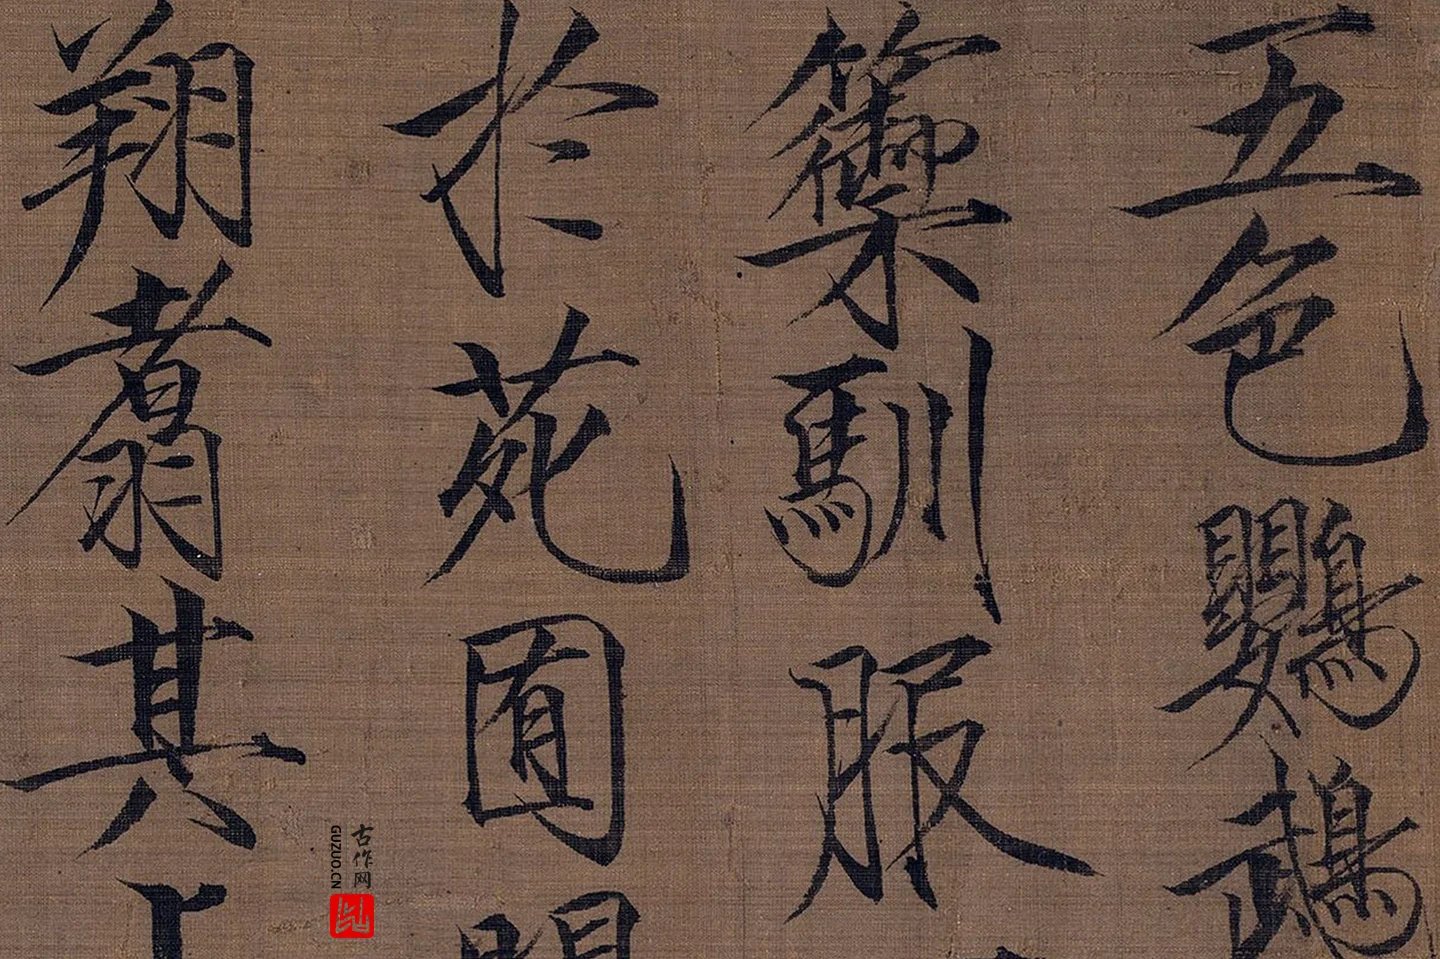 五色鸚䳇
籞馴服
於苑囿間
翔翥其上
古作网
GUZUO.CN